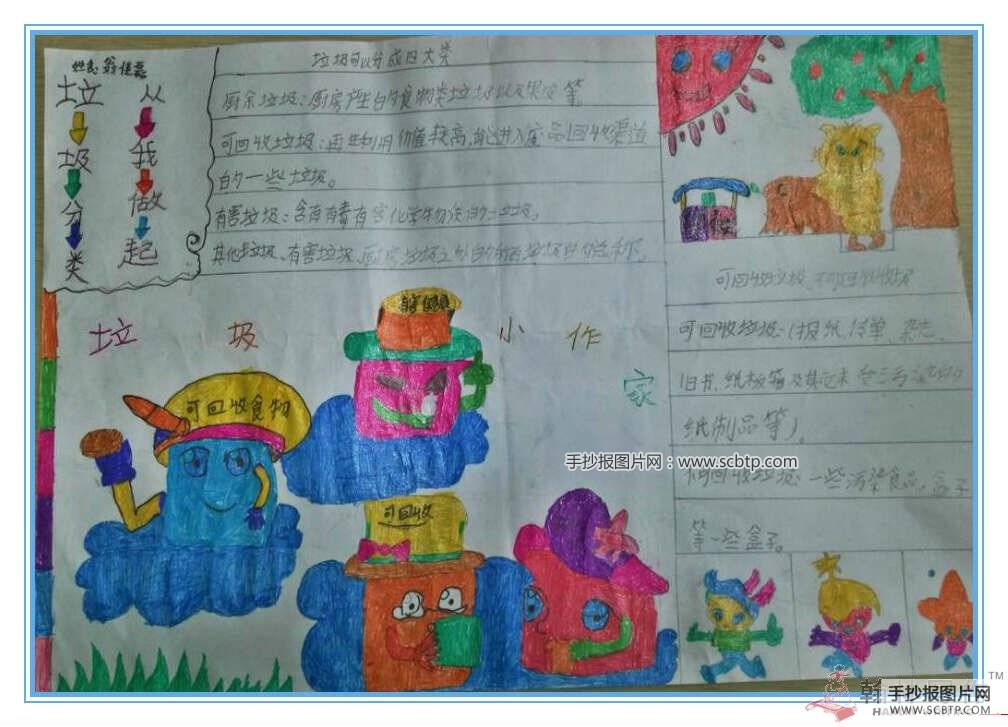 姓名
垃圾分类
从我做起
垃圾可以分成四大类
厨余垃圾：厨房产生的食物类垃圾以及果皮等。
可回收垃圾：再生利用价值较高，能进入废品回收渠道
的一些垃圾。
有害垃圾：含有有毒有害化学物质的一些垃圾。
其他垃圾、有害垃圾、厨房垃圾之外的
垃圾
小作
家
可回收食物
可回收
可回收垃圾
可回收垃圾：（报纸、传单、杂志、
旧书、纸板箱及其它未受
纸制品等）。
不可回收垃圾：一些污染食品、盒子
等一些盒子。
手抄报图片网：www.scbtp.com
TM
手抄报图片网
WWW.SCBTP.COM